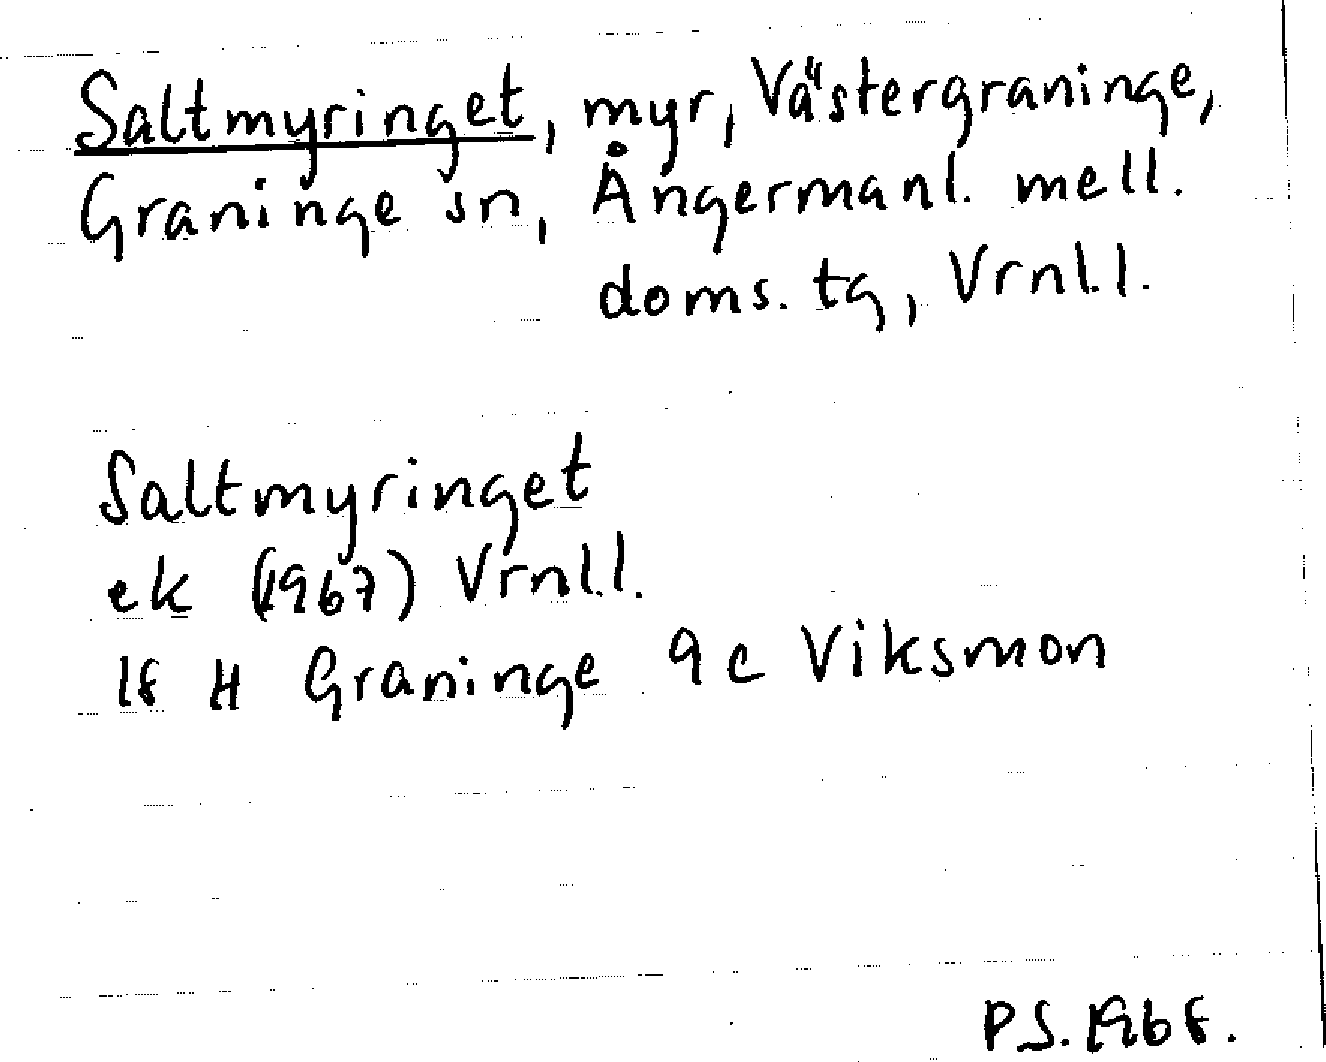 Saltmyringet, myr, Västergraninge,
Graninge sn, Ångermanl. mell.
doms. tg, Vrnl.l.
Saltmyringet
ek (1967) Vrnl.l.
18 H Graninge 9 c Viksmon
P.S. 1968.